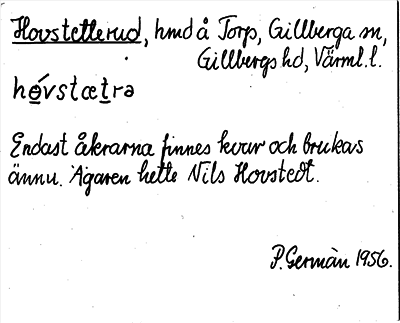 Hovstetterud, hmd å Torp, Gillberga sn,
Gillbergs hd, Värml. l.
hó̲vstæt̲rə
Endast åkrarna finnes kvar och brukas
ännu. Ägaren hette Nils Hovstedt.
P. Germàn 1956.